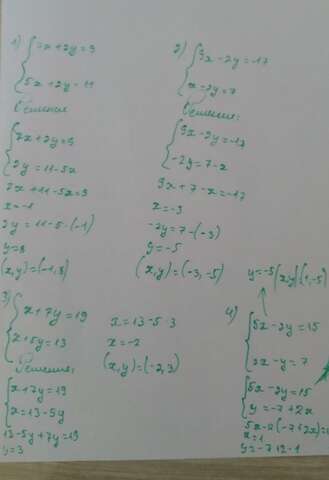 1) { 7x + 2y = 9
5x + 2y = 11
Решение
{ 7x + 2y = 9
2y = 11 - 5x
7x + 11 - 5x = 9
x = -1
2y = 11 - 5 · (-1)
y = 8
(x, y) = (-1, 8)
2) { 9x - 2y = -17
x - 2y = 7
Решение:
{ 9x - 2y = -17
-2y = 7 - x
9x + 7 - x = -17
x = -3
-2y = 7 - (-3)
y = -5
(x, y) = (-3, -5)
3) { x + 7y = 19
x + 5y = 13
Решение:
{ x + 7y = 19
x = 13 - 5y
13 - 5y + 7y = 19
y = 3
x = 13 - 5 · 3
x = -2
(x, y) = (-2, 3)
4)
{ 5x - 2y = 15
2x - y = 7
{ 5x - 2y = 15
y = -7 + 2x
5x - 2(-7 + 2x) =
x = 1
y = -7 + 2 · 1
y = -5 (x, y) (1, -5)